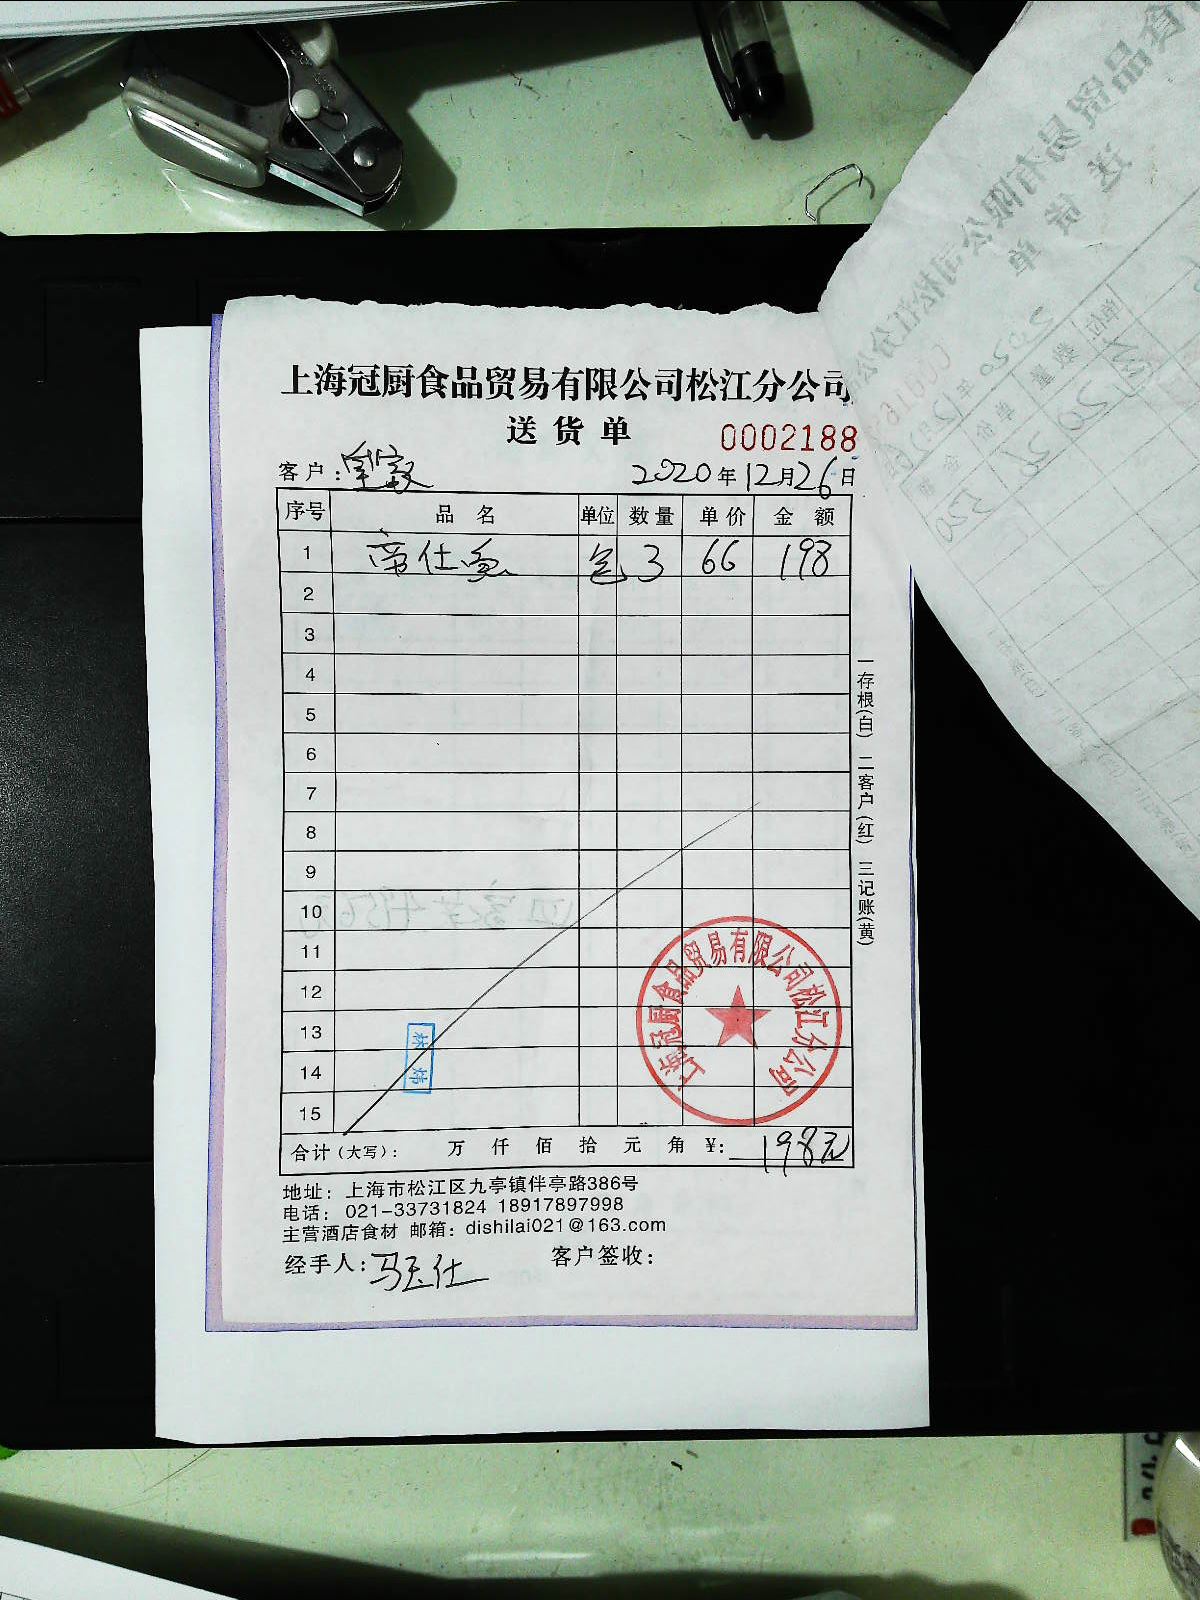 上海冠厨食品贸易有限公司松江分公司
送货单
0002188
客户:
2020年12月26日
序号 品名 单位 数量 单价 金额
1 帝仕 包 3 66 198
2
3
4
5
6
7
8
9
10
11
12
13
14
15
合计(大写): 万 仟 佰 拾 元 角 ¥: 198元
地址: 上海市松江区九亭镇伴亭路386号
电话: 021-33731824 18917897998
主营酒店食材 邮箱: dishilai021@163.com
经手人: 马玉仕 客户签收:
一存根(白) 二客户(红) 三记账(黄)
上海冠厨食品贸易有限公司松江分公司
林炜